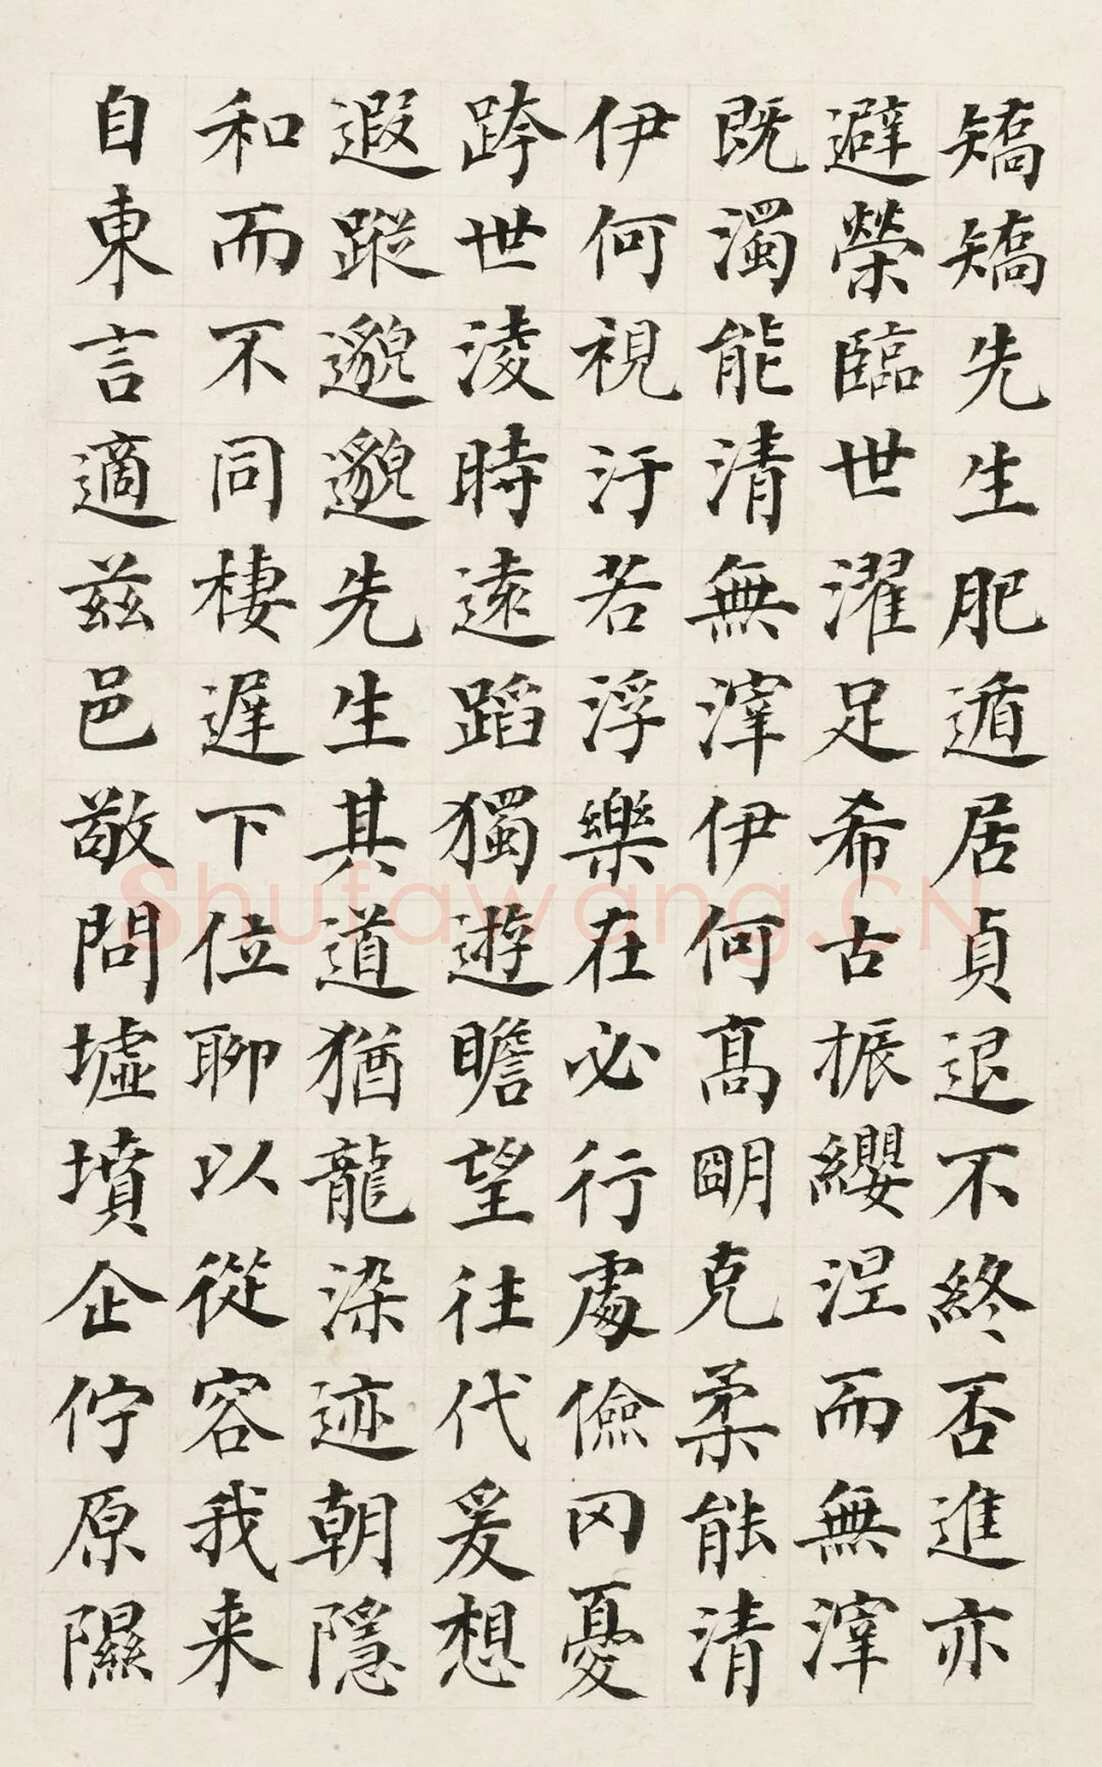 矯矯先生肥遁居貞退不終否進亦
避榮臨世濯足希古振纓涅而無滓
既濁能清無滓伊何高明克柔能清
伊何視汙若浮樂在必行處儉罔憂
跨世淩時遠蹈獨遊瞻望往代爰想
遐蹤邈邈先生其道猶龍染迹朝隱
和而不同棲遲下位聊以從容我来
自東言適茲邑敬問墟墳企佇原隰
Shufawang.CN